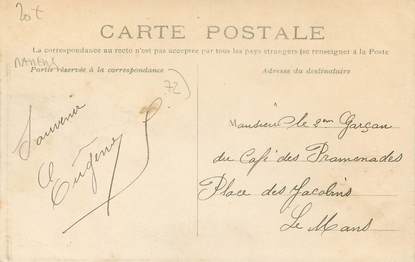 20€
CARTE POSTALE
La correspondance au recto n'est pas acceptée par tous les pays étrangers (se renseigner à la Poste
MAMERS
Partie réservée à la correspondance
Adresse du destinataire
72
Souvenir
Eugène
Monsieur le 2em Garçan
du Café des Promenades
Place des Jacobins
Le Mans